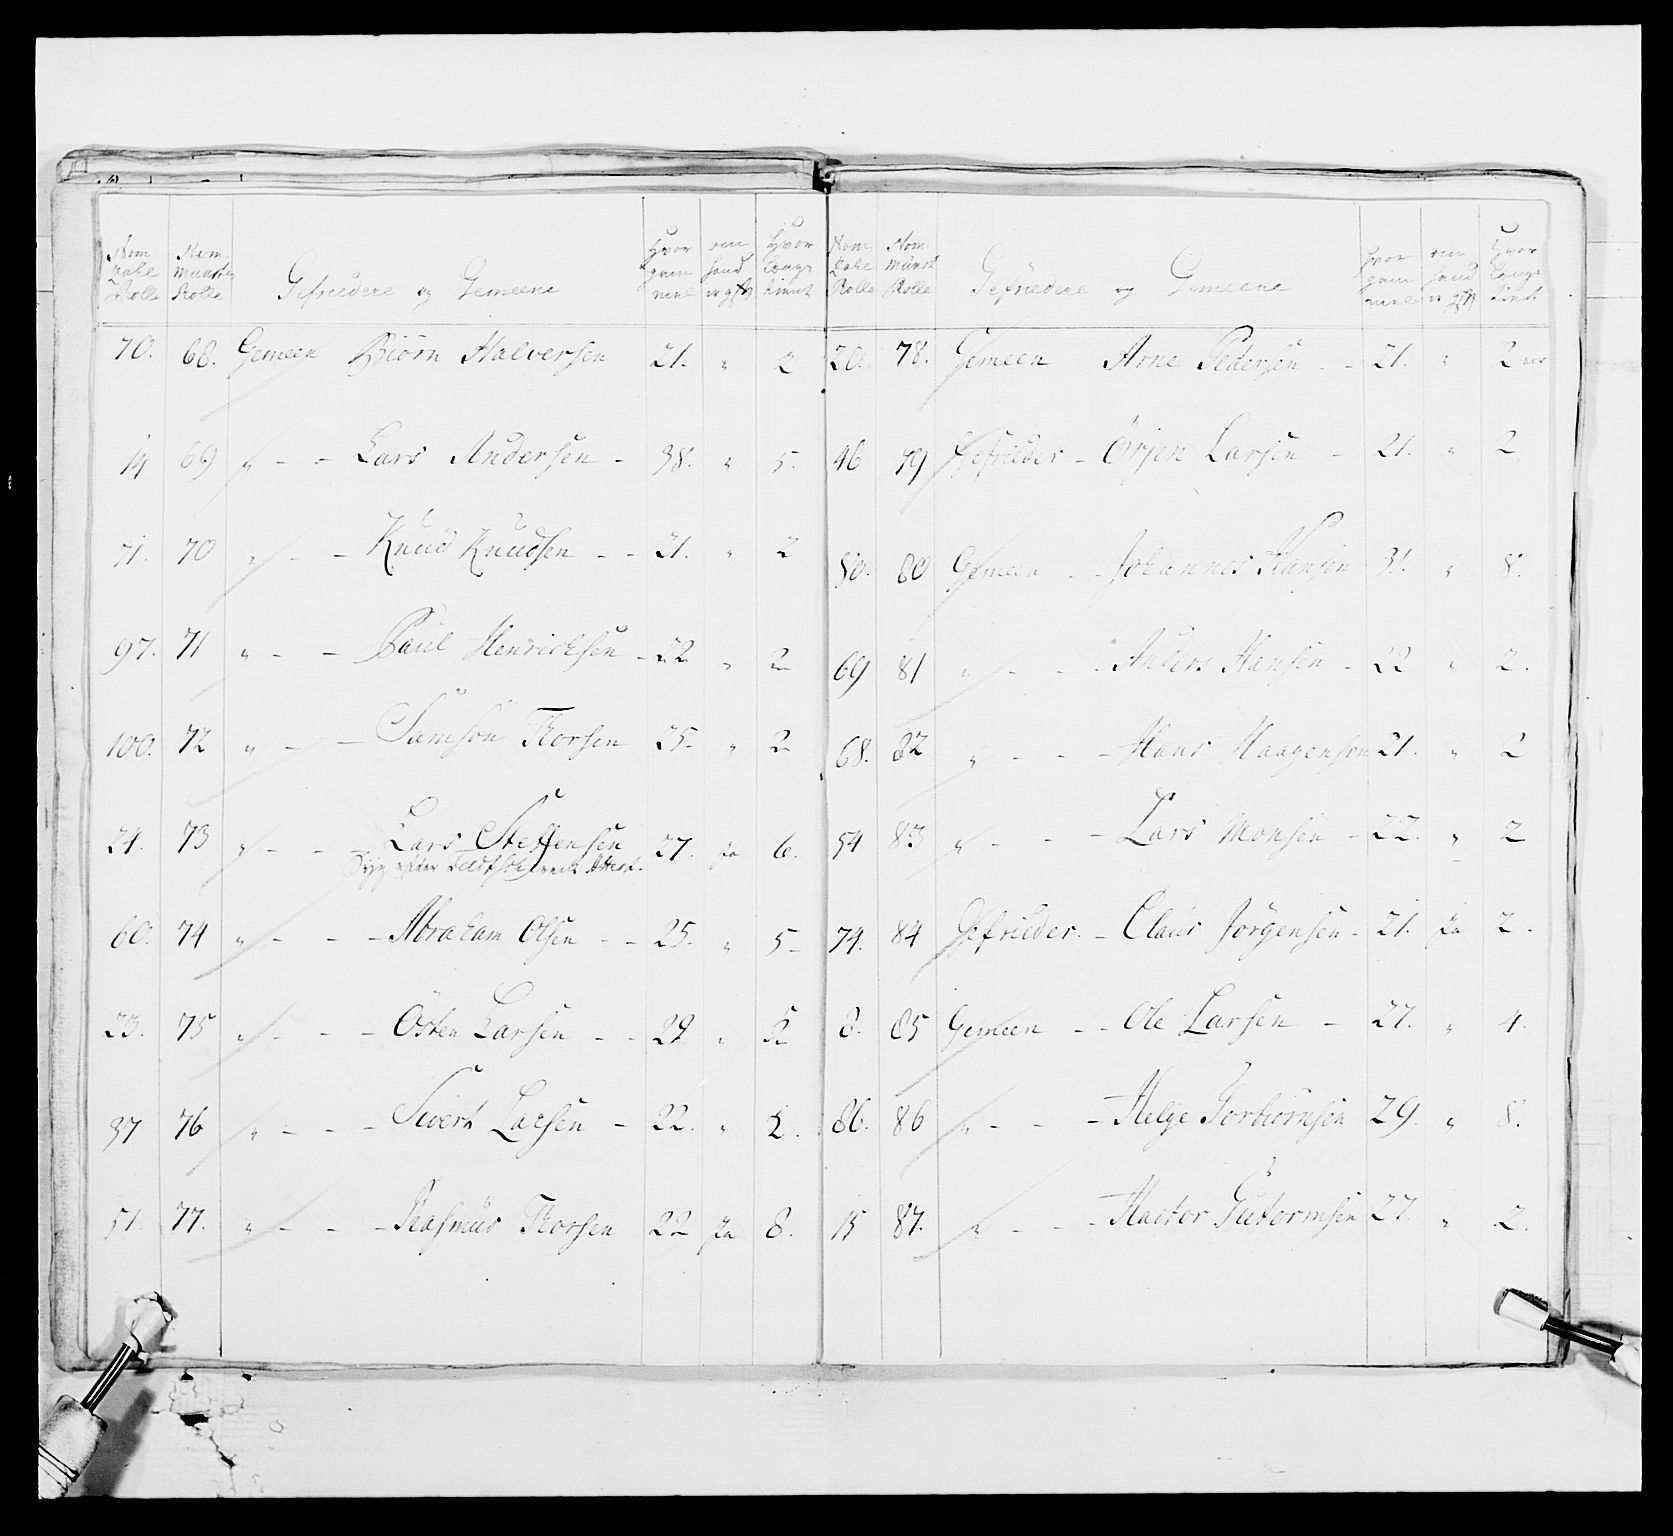 Nom Rolle Nom Munster Rolle Gefriedere og Gemeene Hvor gam mel om hand er gift Hvor længe tient
70. 68. Gemeen Biörn Halversen 21. " 2
14 69 " - - Lars Andersen - 38. " 5.
71. 70 " - - Knud Knudsen - - 21. " 2
97. 71 " - - Paul Henrichsen - 22 " 2
100. 72 " - - Samson Thorsen 25. " 2
24. 73 " - - Lars Steffensen 27. Ja 6.
Syg efter
60. 74 " - - - Abraham Olsen - - 25. " 5 -
23. 75 " - - - Östen Larsen - - 29 "
37 76 " - - - Sivert Larsen - 22. " 2.
51. 77. " - - - Rasmus Thorsen 22 Ja 8.
Nom Rolle Nom Munst Rolle Gefriedere og Gemeene Hvor gam mel om hand er gift Hvor længe tient
20. 78. Gemeen Arne Pedersen - - 21. " 2
46 79 Gefrieder - Örjen Larsen - 21. " 2
50. 80 Gemeen - - Johannes Hansen 31. " 8.
69 81 " - - - Anders Hansen - 22 " 2.
68. 82 " - - - Hans Haagensen 21. " 2
54 83 " - - - Lars Monsen - 22. " 2
74. 84 Gefrieder. - Claus Jörgensen - 21. Ja 2.
8. 85 Gemeen - - Ole Larsen - 27. " 4.
86. 86 " - - - Helge Torbiörnsen 29. " 8.
15 87. " - - - Hactor Gutormsen 27. " 2.